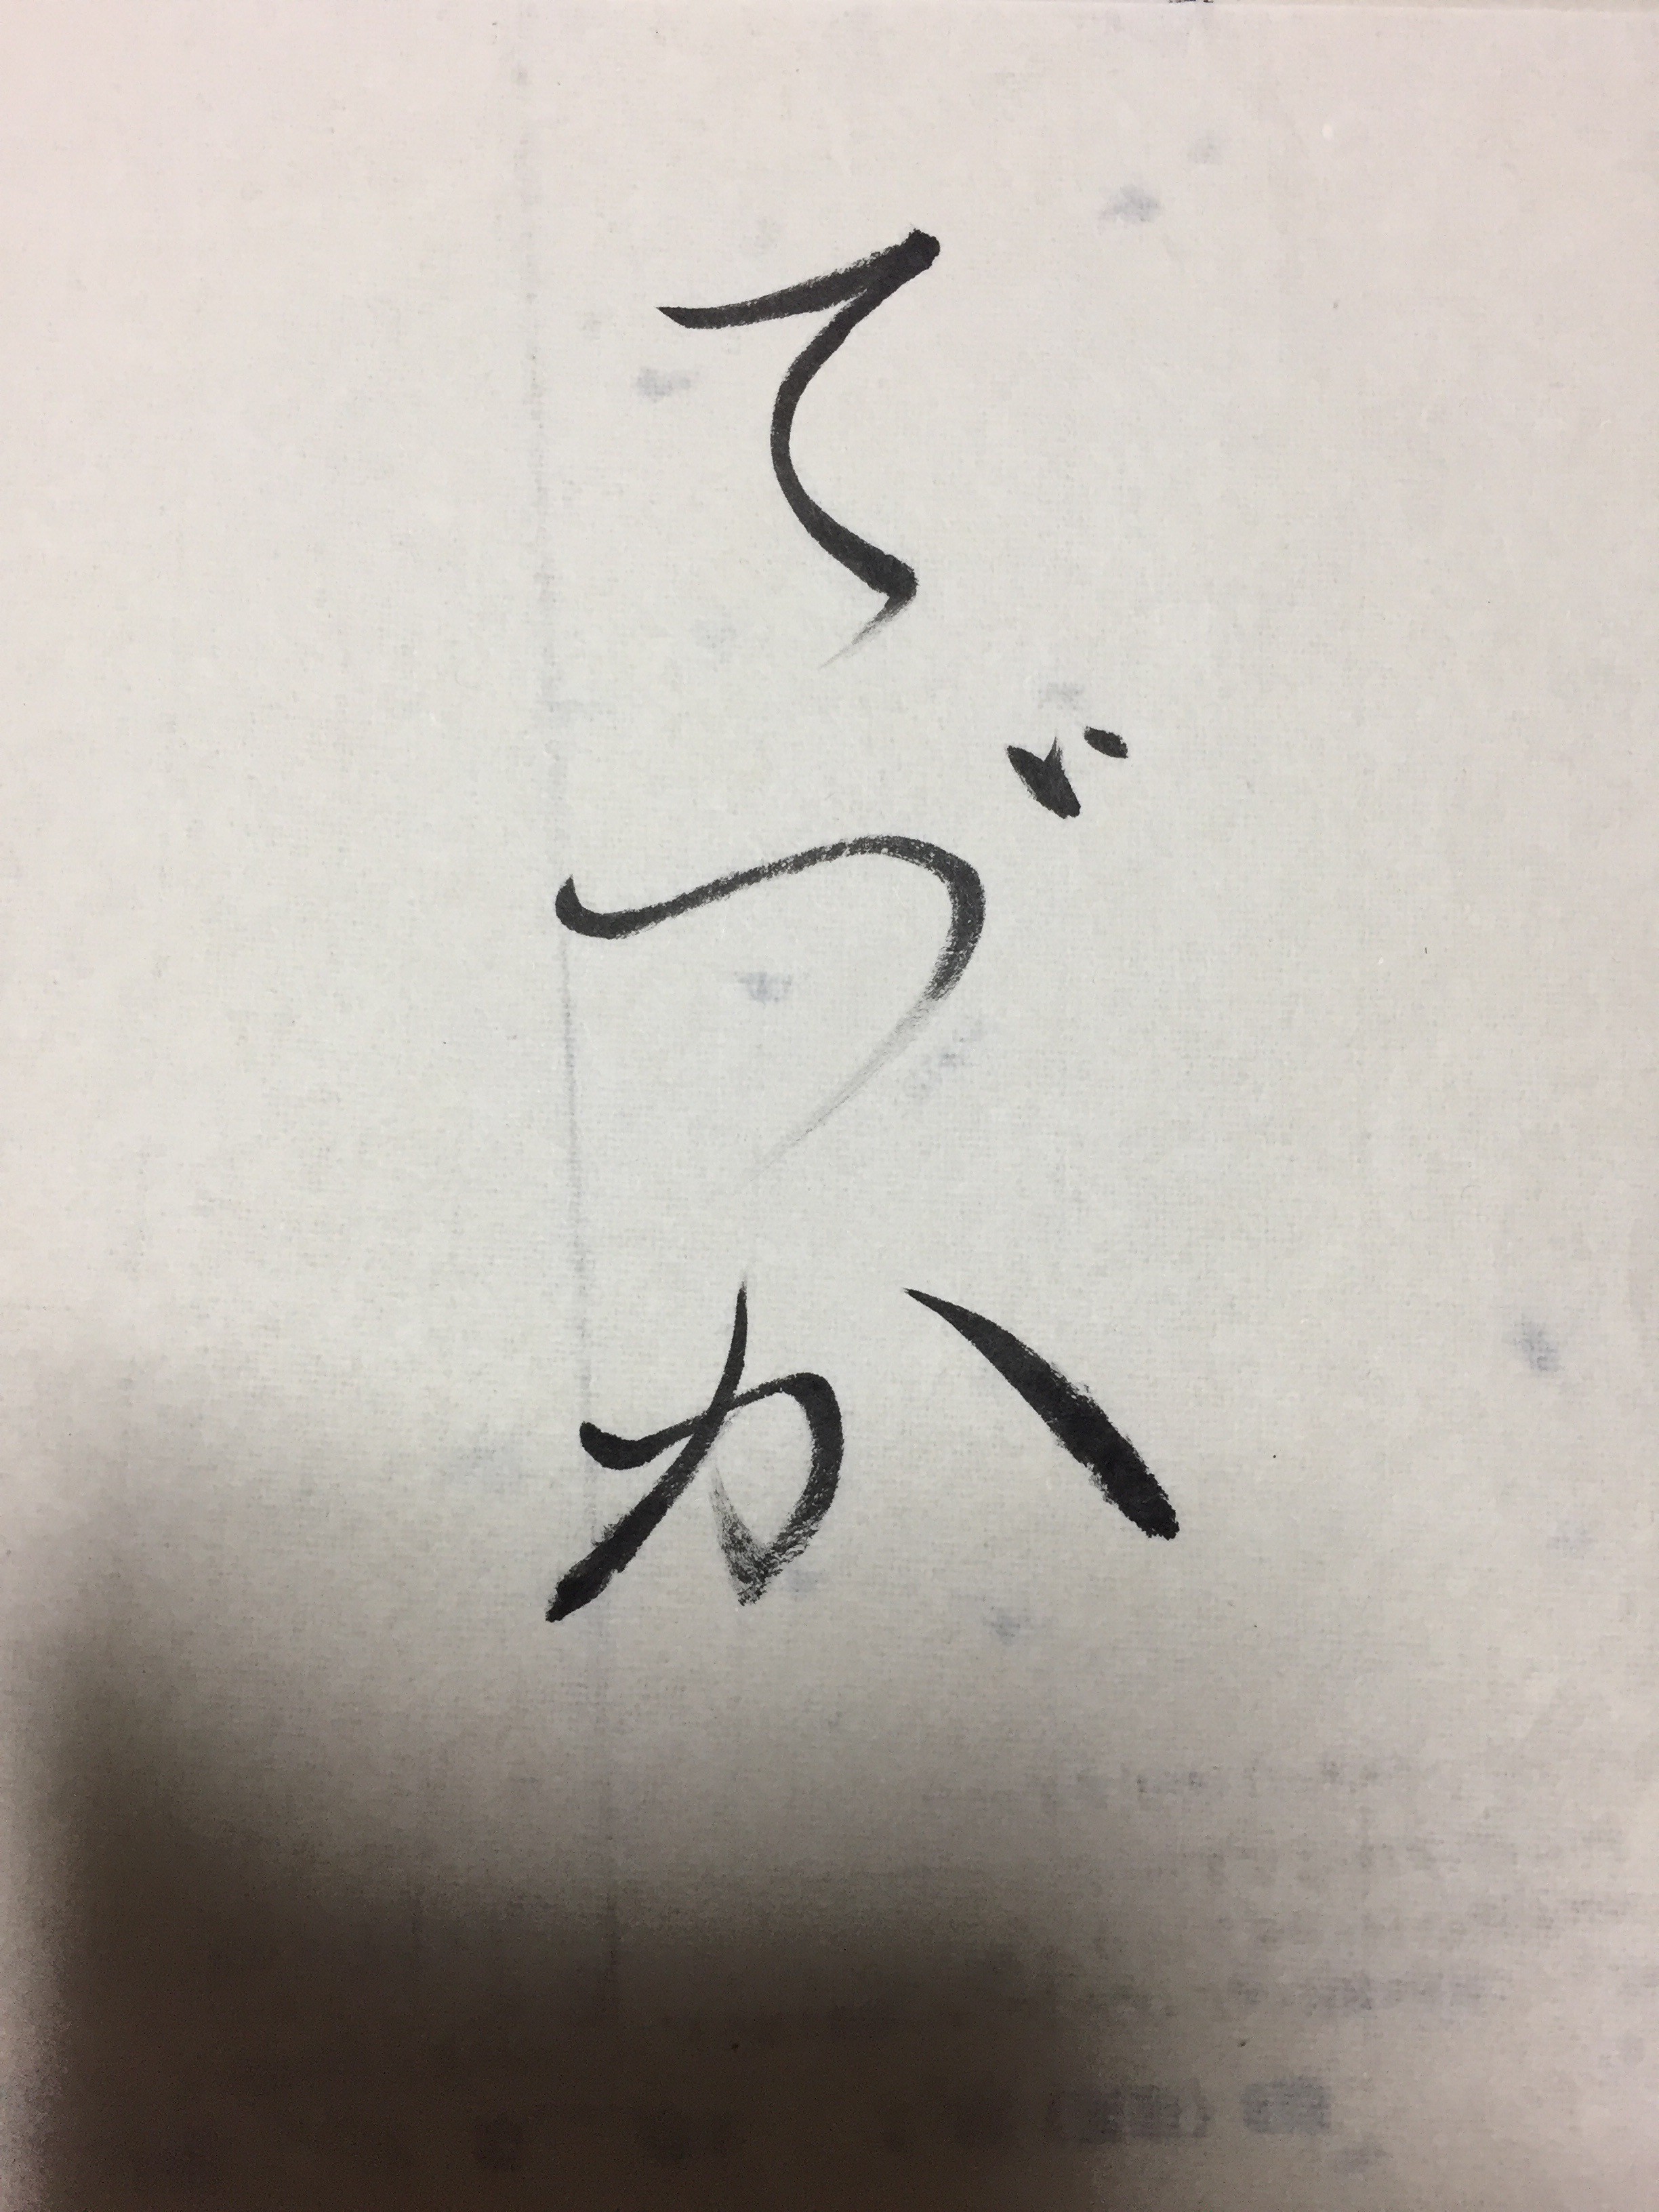 てづか